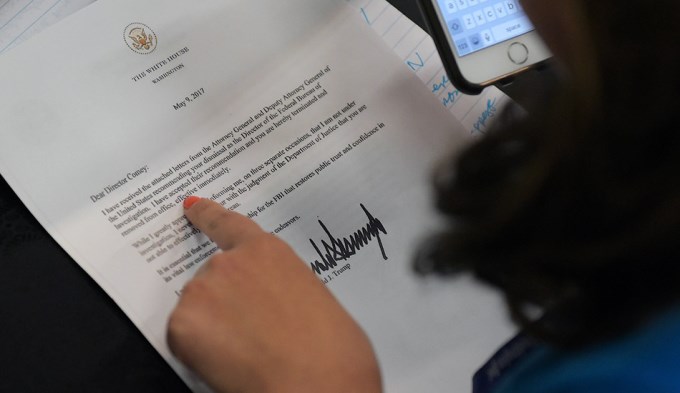 THE WHITE HOUSE
WASHINGTON
May 9, 2017
Dear Director Comey:
I have received the attached letters from the Attorney General and Deputy Attorney General of
the United States recommending your dismissal as the Director of the Federal Bureau of
Investigation. I have accepted their recommendation and you are hereby terminated and
removed from office, effective immediately.
While I greatly informing me, on three separate occasions, that I am not under
investigation, I with the judgment of the Department of Justice that you are
not able to
It is essential that we ship for the FBI that restores public trust and confidence in
its vital law
endeavors.
J. Trump